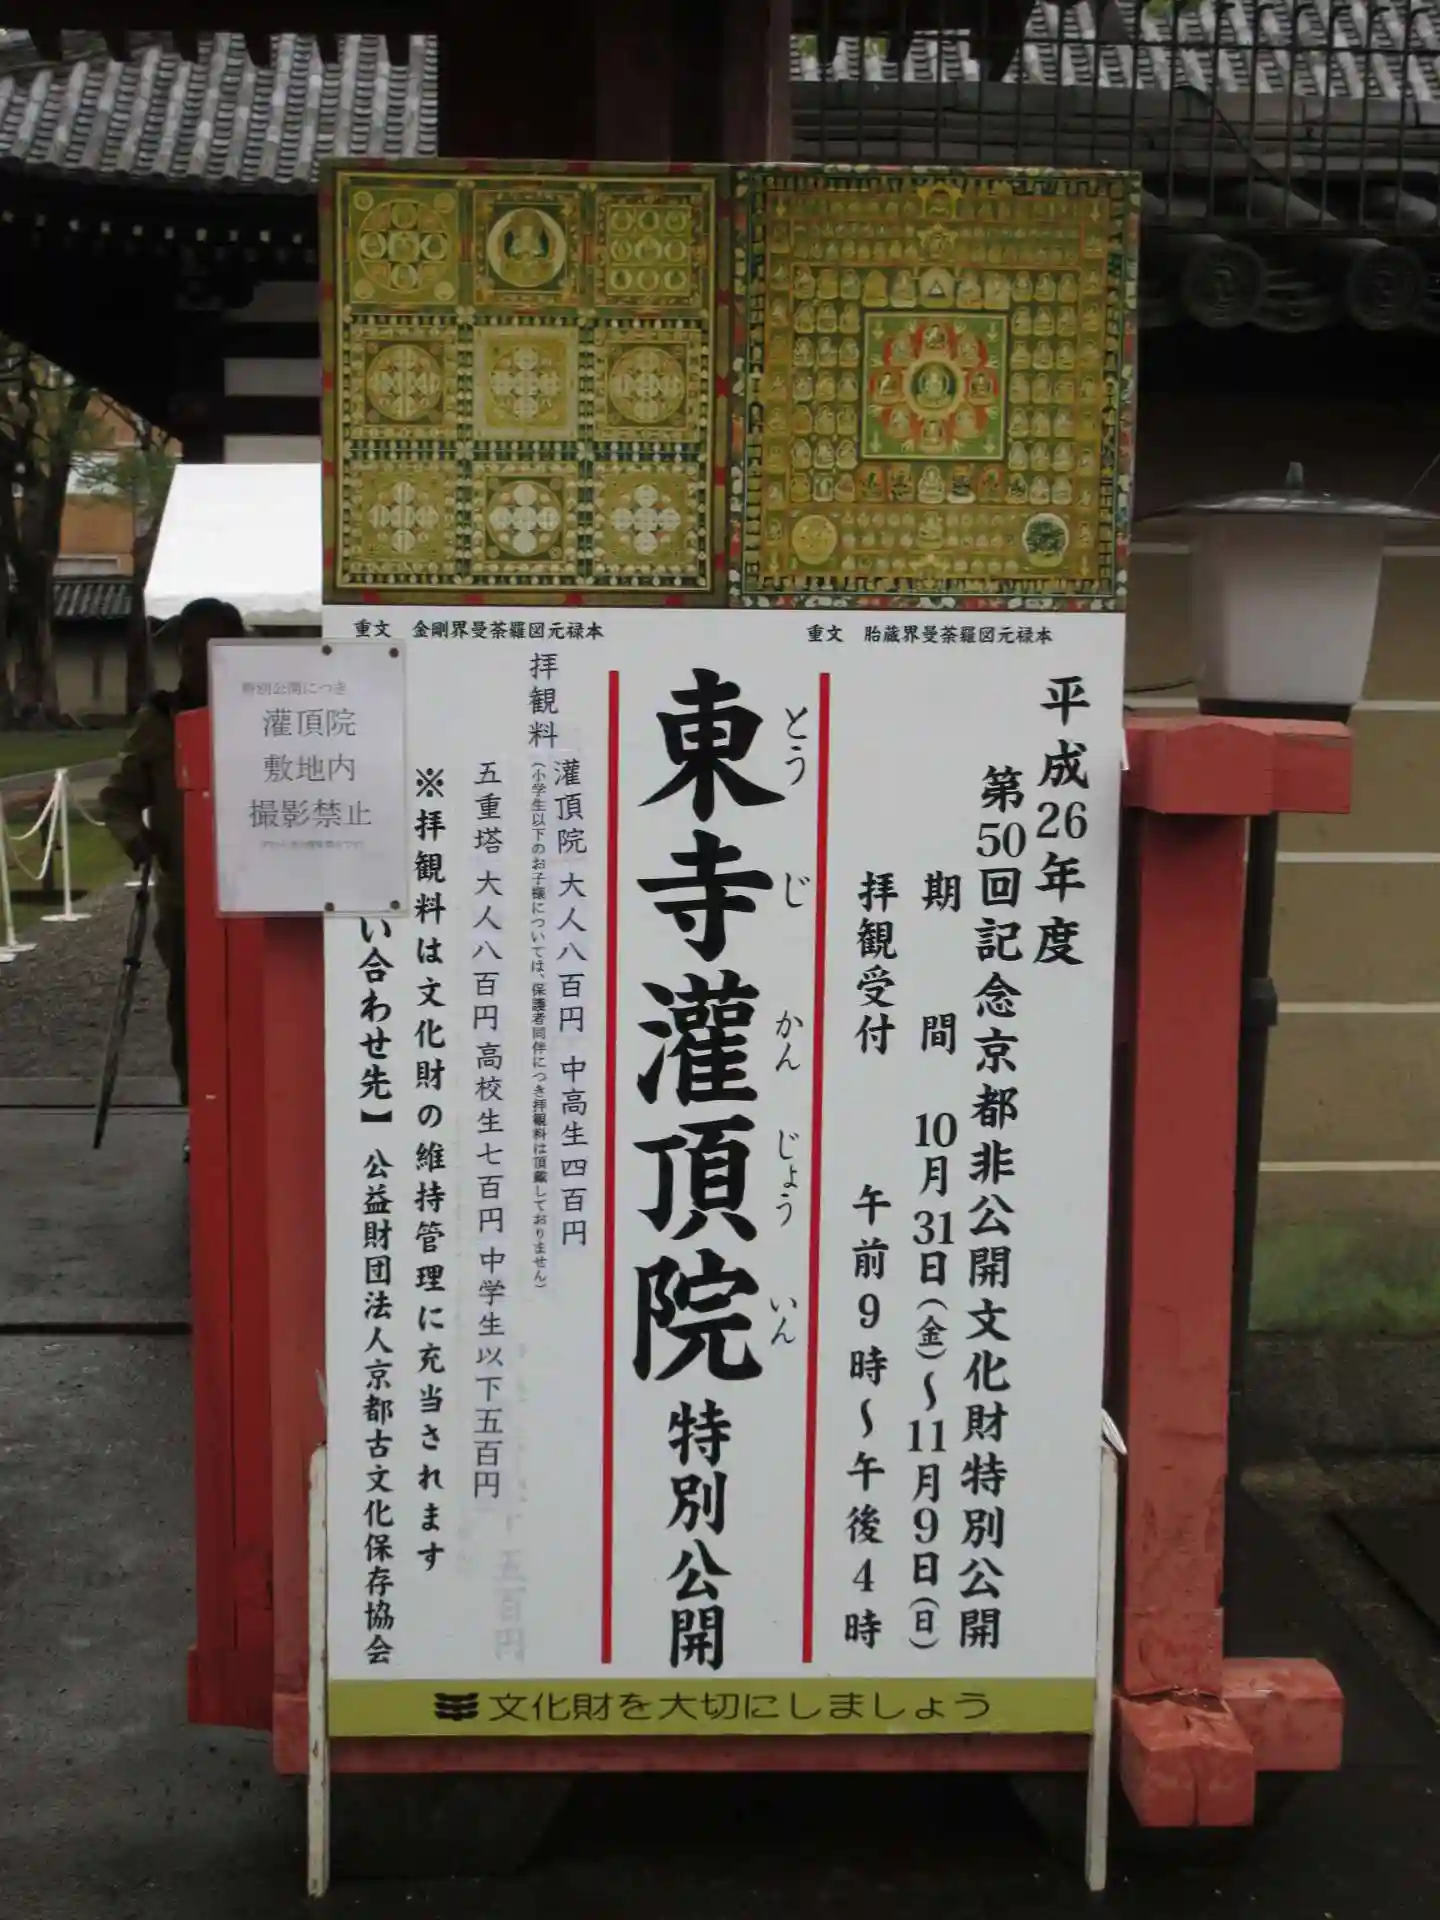 重文　胎蔵界曼荼羅図元禄本
重文　金剛界曼荼羅図元禄本
平成26年度
第50回記念京都非公開文化財特別公開
期間　10月31日(金)～11月9日(日)
拝観受付　午前9時～午後4時
東寺灌頂院 特別公開
とう じ かん じょう いん
拝観料
灌頂院 大人八百円 中高生四百円
(小学生以下のお子様については、保護者同伴につき拝観料は頂戴しておりません)
五重塔 大人八百円 高校生七百円 中学生以下五百円
※拝観料は文化財の維持管理に充当されます
い合わせ先】 公益財団法人京都古文化保存協会
特別公開につき
灌頂院
敷地内
撮影禁止
文化財を大切にしましょう